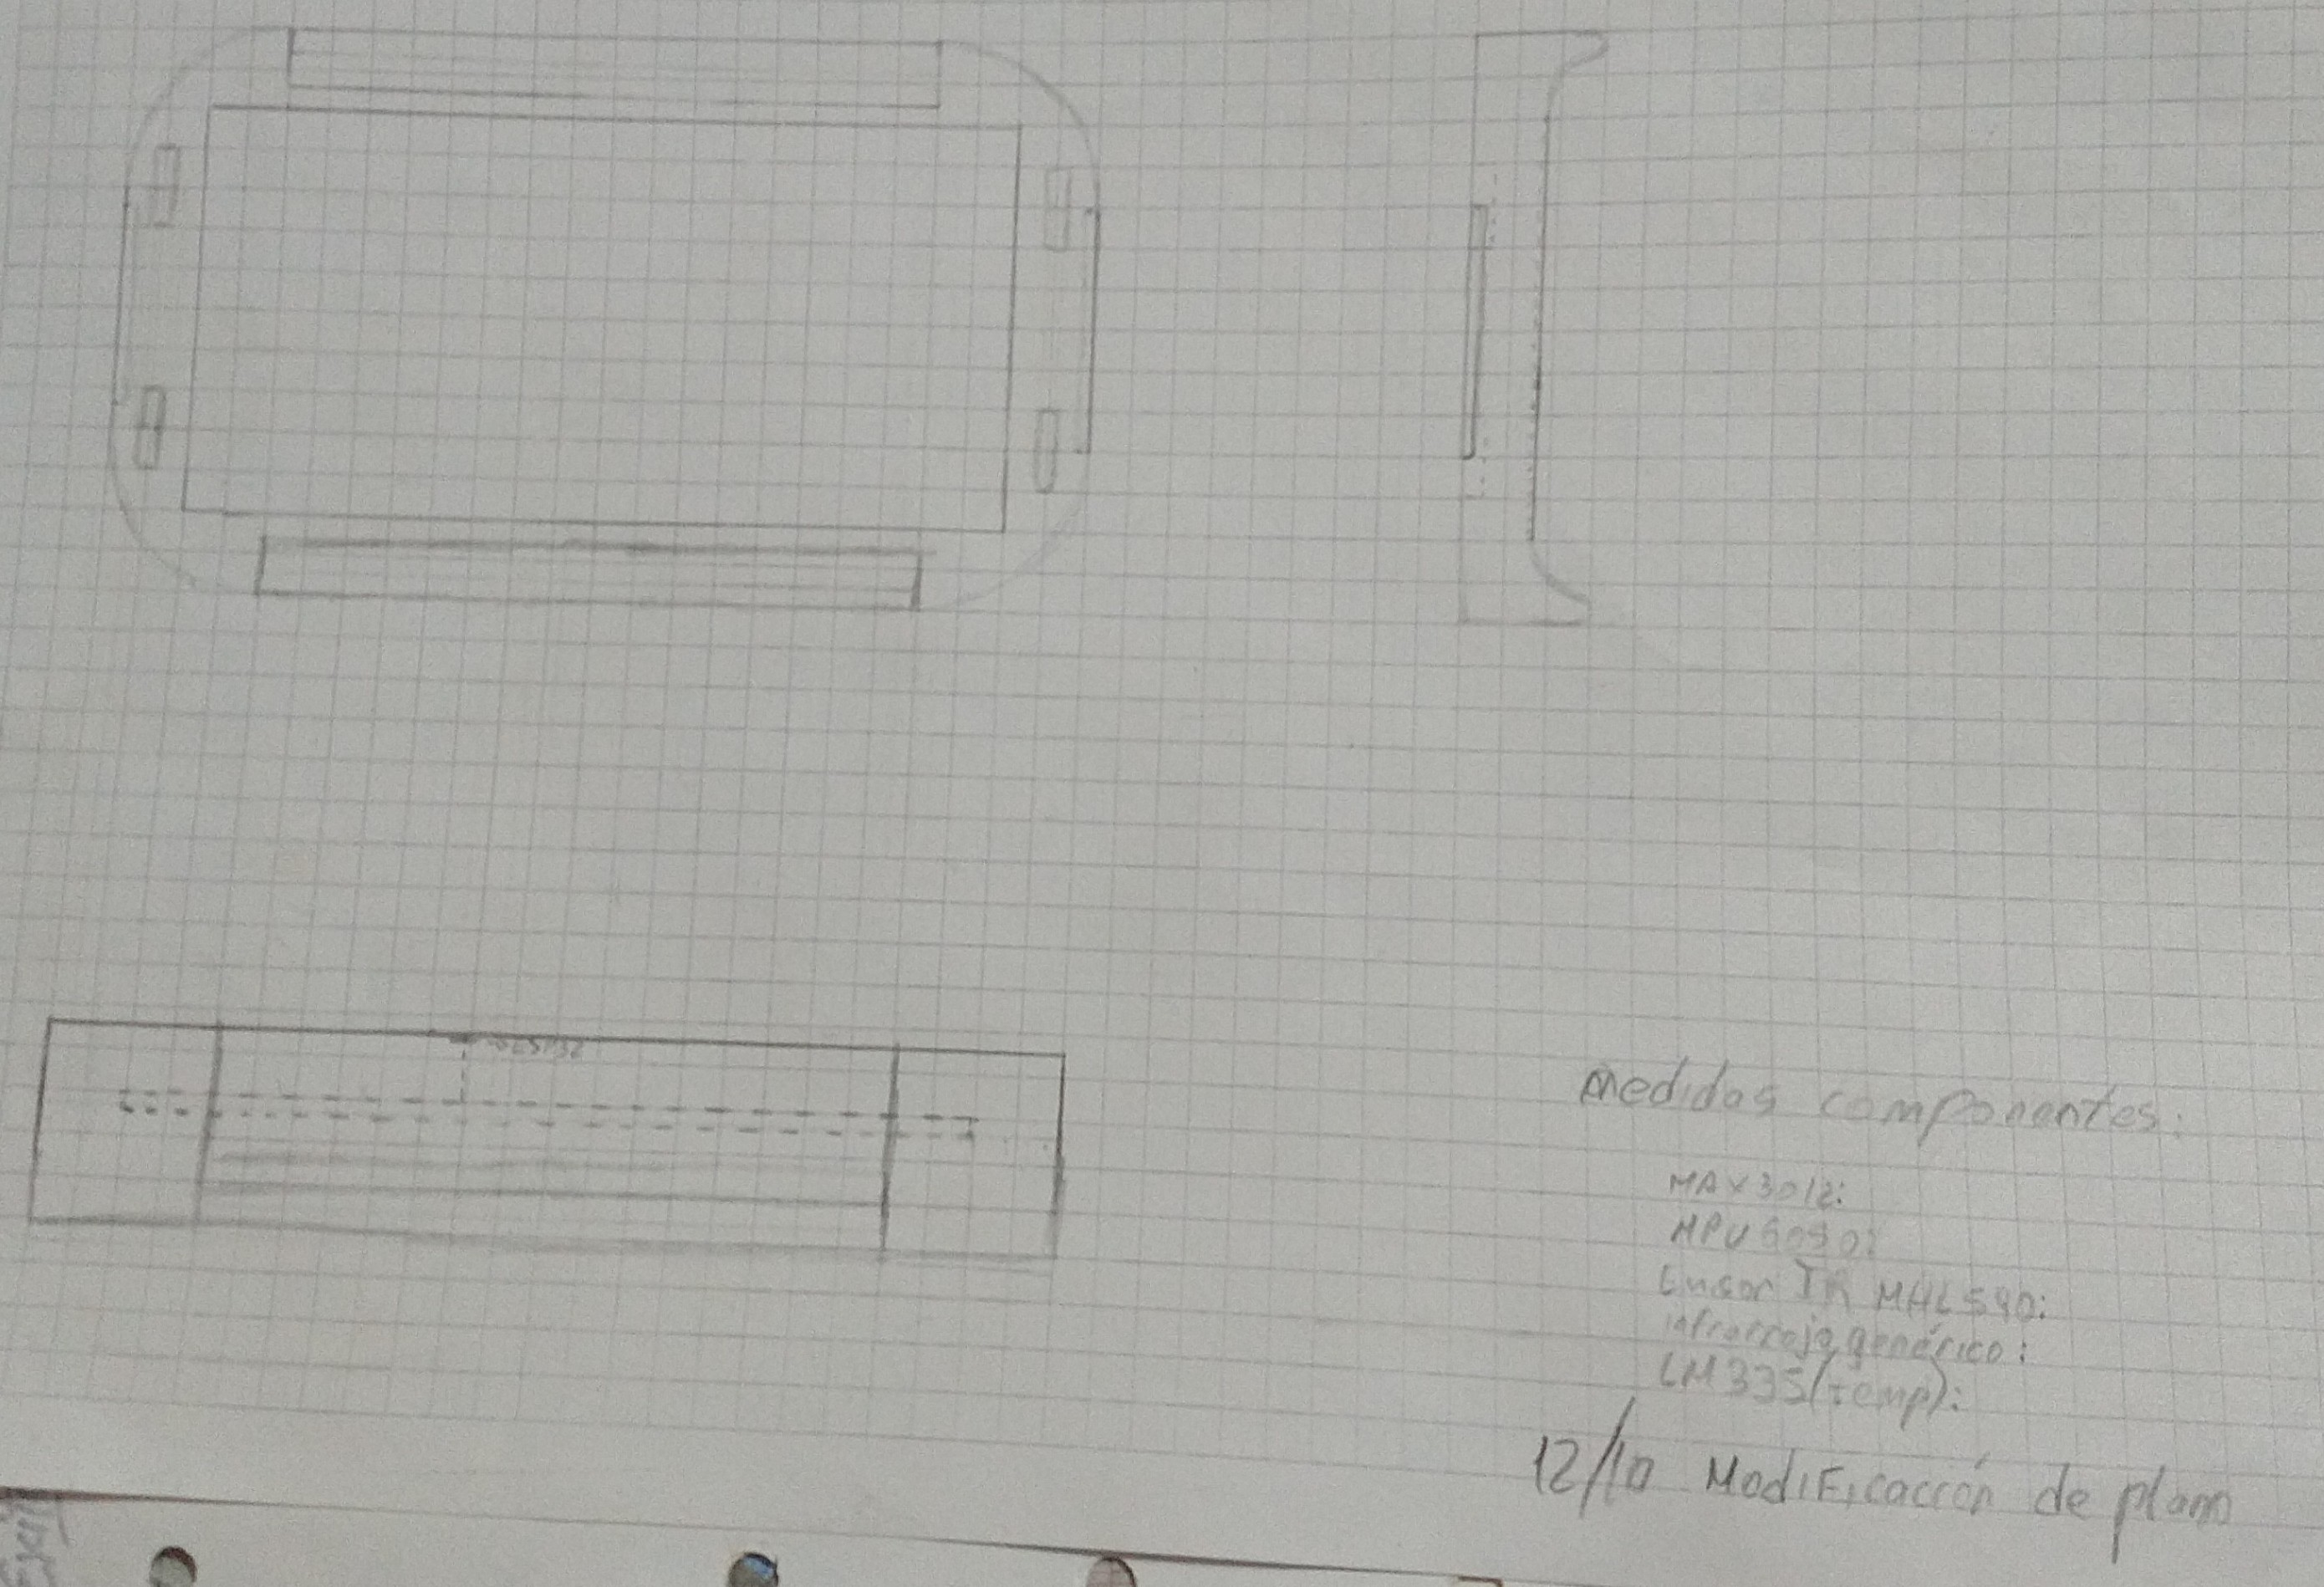 ESP32
medidas componentes:
MAX3012:
MPU6050:
Sensor IR
infrarrojo genérico:
LM335(temp):
12/10 Modificacción de plano